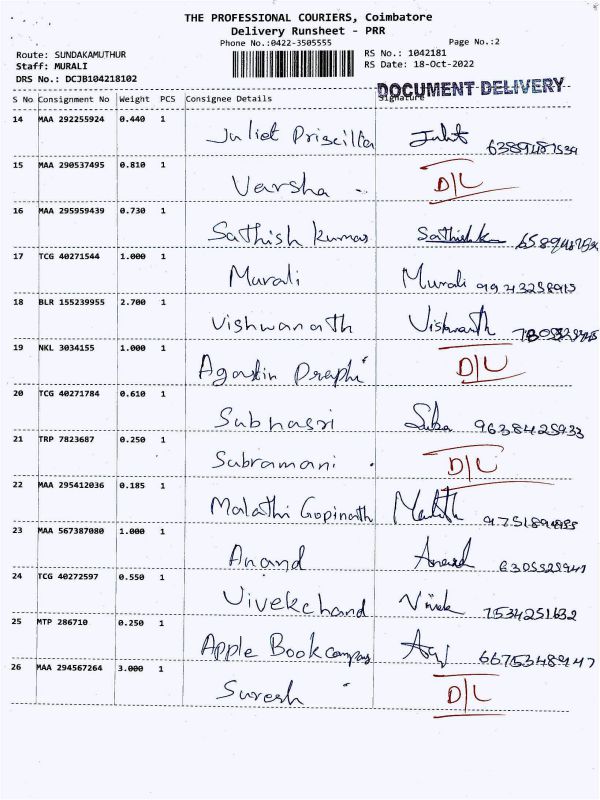 THE PROFESSIONAL COURIERS, Coimbatore
Delivery Runsheet - PRR
Phone No.:0422-3505555 Page No.:2
Route: SUNDAKAMUTHUR RS No.: 1042181
Staff: MURALI RS Date: 18-Oct-2022
DRS No.: DCJB104218102
DOCUMENT DELIVERY
S No Consignment No Weight PCS Consignee Details Signature
14 MAA 292255924 0.440 1
Juliet Priscilla
15 MAA 290537495 0.810 1
Varsha D/L
16 MAA 295959439 0.730 1
Sathish Kumar Sathishk
17 TCG 40271544 1.000 1
Murali Murali
18 BLR 155239955 2.700 1
Vishwanath Vishwanth
19 NKL 3034155 1.000 1
Agastin D/L
20 TCG 40271784 0.610 1
Subhasri 9638425933
21 TRP 7823687 0.250 1
Subramani D/L
22 MAA 295412036 0.185 1
Malathi Gopinath
23 MAA 567387080 1.000 1
Anand Anand
24 TCG 40272597 0.550 1
Vivekchand Vivek 7534251632
25 MTP 286710 0.250 1
Apple Book company 66753489147
26 MAA 294567264 3.000 1
Suresh D/L